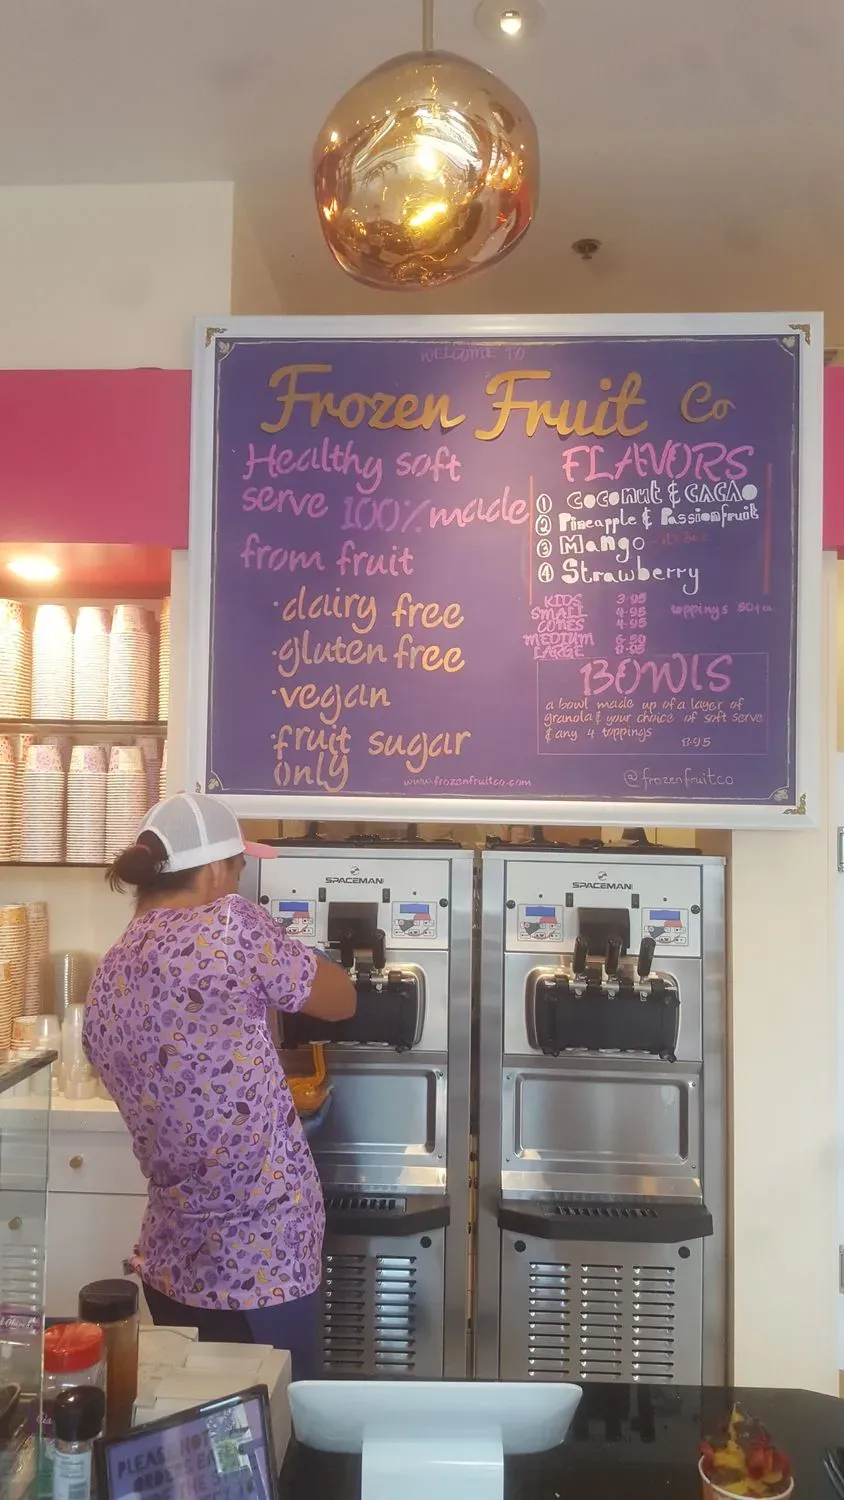 WELCOME TO
Frozen Fruit Co
Healthy soft
serve 100% made
from fruit
· dairy free
· gluten free
· vegan
· fruit sugar
only
www.frozenfruitco.com
FLAVORS
① COCONUT & CACAO
② Pineapple & Passionfruit
③ Mango
④ Strawberry
KIDS 3.95
SMALL 4.95
CONES 4.95
MEDIUM 6.50
LARGE 8.95
toppings 50¢ ea
BOWLS
a bowl made up of a layer of
granola & your choice of soft serve
& any 4 toppings
8.95
@frozenfruitco
SPACEMAN
SPACEMAN
PLEASE